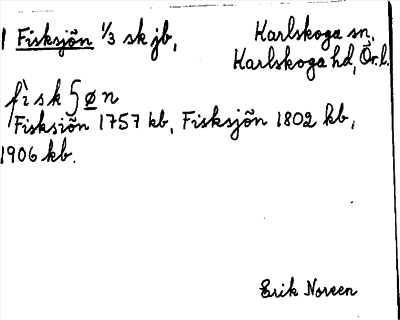 1 Fisksjön 1/3 sk jb,
Karlskoga sn,
Karlskoga hd, Ör. l.
fìskʃøn
Fisksiön 1757 kb, Fisksjön 1802 kb,
1906 kb.
Erik Noreen